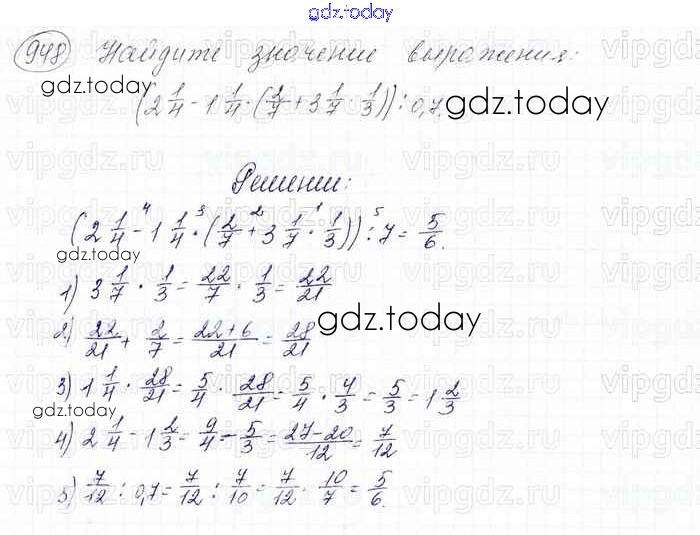 gdz.today
948 Найдите значение выражения:
gdz.today
(2 1/4 - 1 1/4 · (2/7 + 3 1/7 · 1/3)) : 0,7.
gdz.today
Решение:
(2 1/4 -⁴ 1 1/4 ·³ (2/7 +² 3 1/7 ·¹ 1/3)) :⁵ 7 = 5/6.
gdz.today
1) 3 1/7 · 1/3 = 22/7 · 1/3 = 22/21
gdz.today
2) 22/21 + 2/7 = 22+6/21 = 28/21
3) 1 1/4 · 28/21 = 5/4 · 28/21 = 5/4 · 4/3 = 5/3 = 1 2/3
gdz.today
4) 2 1/4 - 1 2/3 = 9/4 - 5/3 = 27-20/12 = 7/12
5) 7/12 : 0,7 = 7/12 : 7/10 = 7/12 · 10/7 = 5/6.
vipgdz.ru